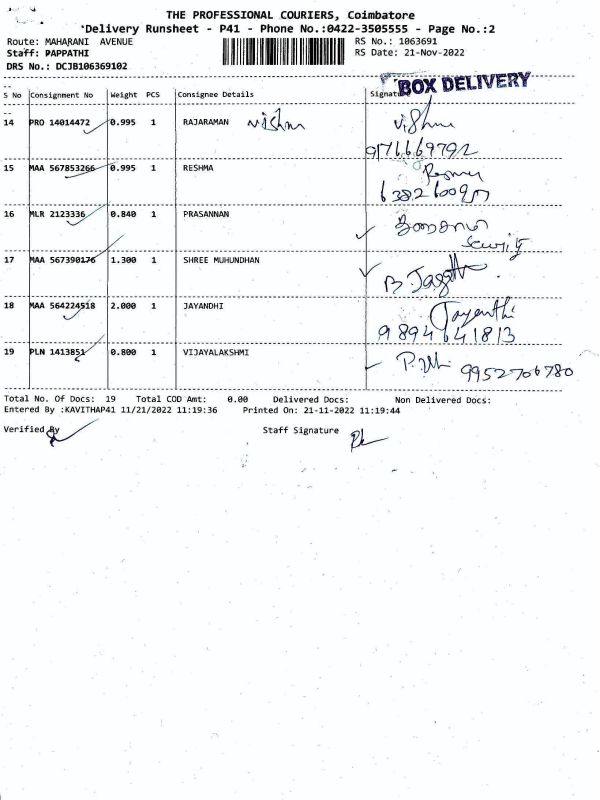 THE PROFESSIONAL COURIERS, Coimbatore
Delivery Runsheet - P41 - Phone No.:0422-3505555 - Page No.:2
Route: MAHARANI AVENUE RS No.: 1063691
Staff: PAPPATHI RS Date: 21-Nov-2022
DRS No.: DCJB106369102
BOX DELIVERY
S No Consignment No Weight PCS Consignee Details Signature
14 PRO 14014472 0.995 1 RAJARAMAN Vishnu Vishnu
9176669792
15 MAA 567853266 0.995 1 RESHMA
16 MLR 2123336 0.840 1 PRASANNAN
Security
17 MAA 567390176 1.300 1 SHREE MUHUNDHAN
18 MAA 564224518 2.000 1 JAYANDHI Jayanthi
9894641813
19 PLN 1413851 0.800 1 VIJAYALAKSHMI 9952706780
Total No. Of Docs: 19 Total COD Amt: 0.00 Delivered Docs: Non Delivered Docs:
Entered By :KAVITHAP41 11/21/2022 11:19:36 Printed On: 21-11-2022 11:19:44
Verified By Staff Signature